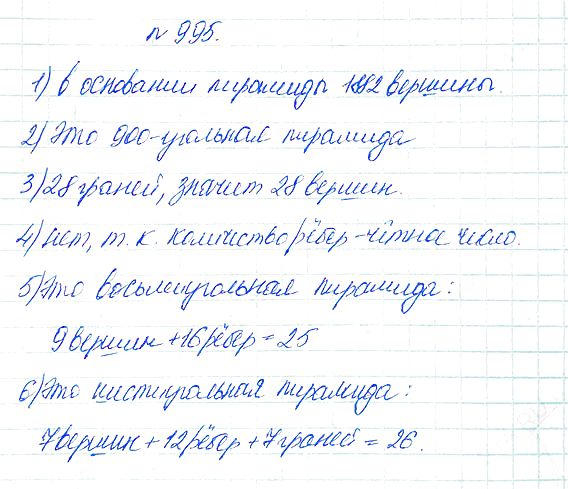 № 995.
1) В основании пирамиды 1992 вершины.
2) Это 900-угольная пирамида
3) 28 граней, значит 28 вершин.
4) Нет, т. к. количество рёбер - чётное число.
5) Это восьмиугольная пирамида:
9 вершин + 16 рёбер = 25
6) Это шестиугольная пирамида:
7 вершин + 12 рёбер + 7 граней = 26.